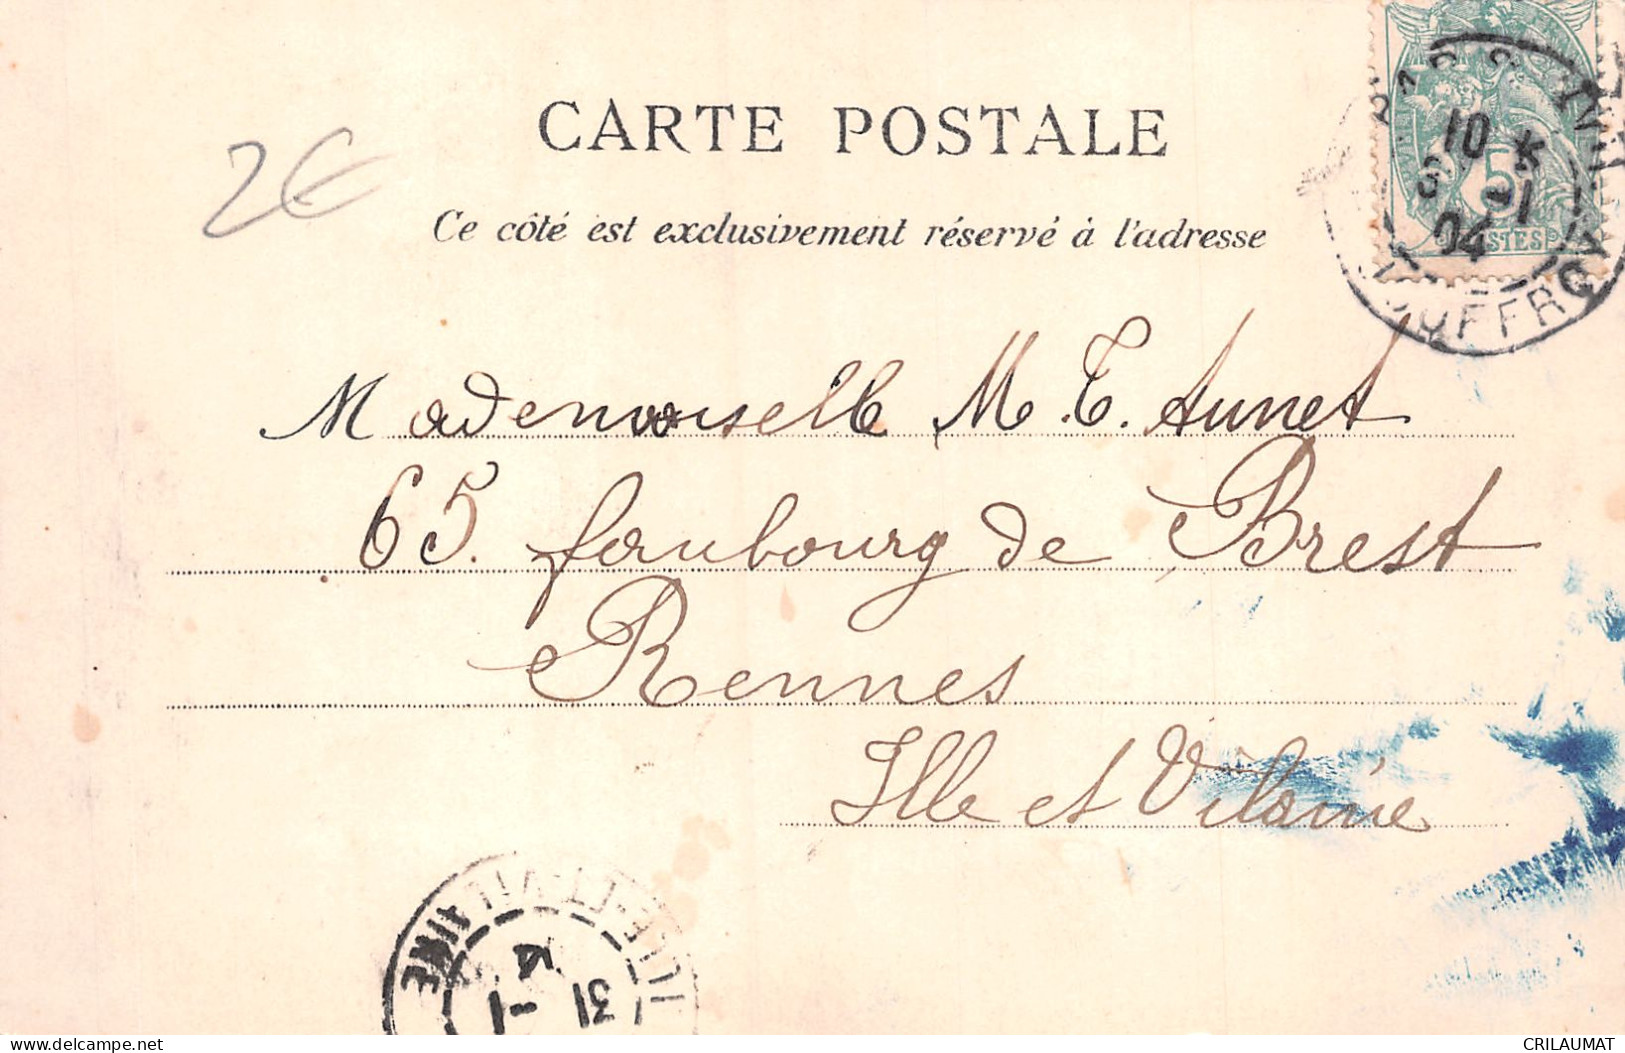 CARTE POSTALE
2€
Ce côté est exclusivement réservé à l'adresse
10
5
-1
04
POSTES
Mademoiselle M. T. Aunet
65. faubourg de Brest
Rennes
Ille et Vilaine
ILLE-ET-VILAINE
31
-1
www.delcampe.net
CRILAUMAT